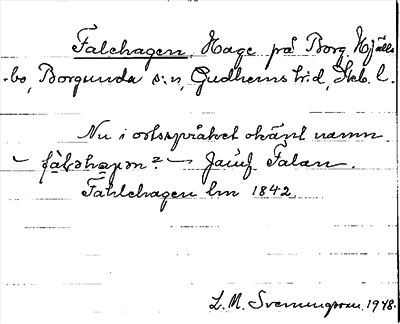 Falehagen. Hage på Borg, Hjälls-
bo, Borgunda s:n, Gudhems hrd, Skb. l.
Nu i ortsspråket okänt namn.
– fàləhaɡən? – Jämf. Falan.
Fahlehagen lm 1842.
L. M. Svenungsson. 1948.